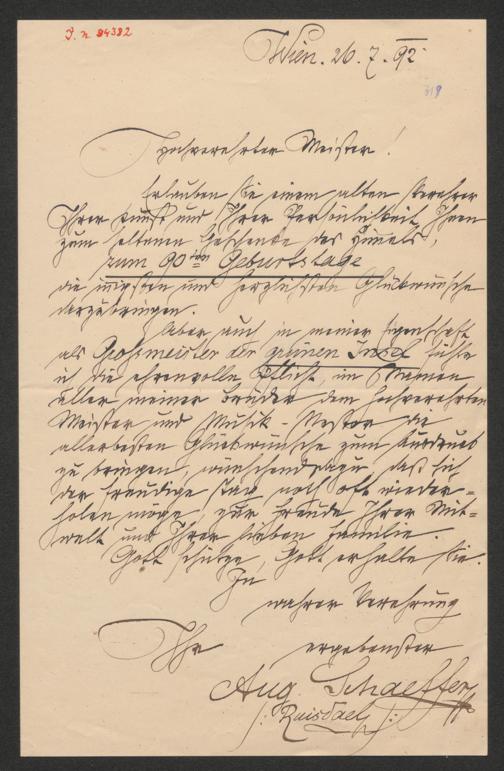 I. N. 94382
Wien. 26. 7. 92.
319
Hochverehrter Meister!
Erlauben Sie einem alten Verehrer
Ihrer Kunst und Ihrer Persönlichkeit, Ihnen
zum seltenen Geschenke des Himels,
zum 90ten Geburtstage
die innigsten und herzlichsten Glückwünsche
darzubringen.
Aber auch in meiner Eigenschaft
als Großmeister der grünen Insel fühle
ich die ehrenvolle Pflicht, im Namen
aller meiner Brüder dem hochverehrten
Meister und Musik-Nestor die
allerbesten Glückwünsche zum Ausdruck
zu bringen, wünschend dazu, daß sich
der freudige Tag noch oft wieder-
holen möge, zur Freude Ihrer Mit-
welt und Ihrer lieben Familie.
Gott schütze, Gott erhalte Sie.
In
wahrer Verehrung
Ihr ergebenster
Aug. Schaeffer
/: Ruisdael :/